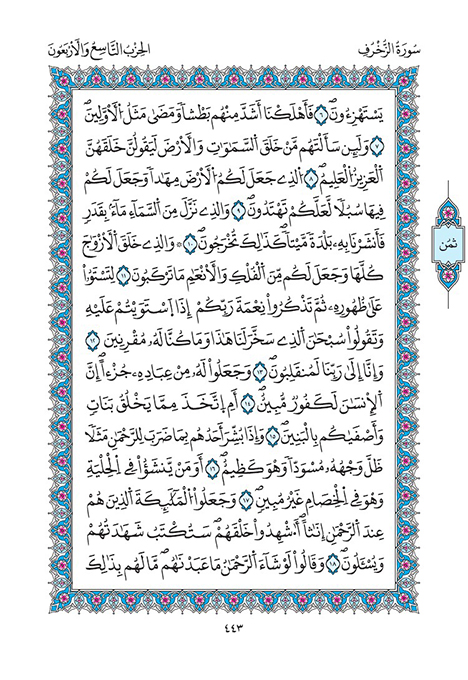 سُورَةُ الزُّخْرُفِ
الحِزْبُ التَّاسِعُ وَالأَرْبَعُونَ
يَسْتَهْزِءُونَۖ ٦ فَأَهْلَكْنَا أَشَدَّ مِنْهُم بَطْشاٗ وَمَضَىٰ مَثَلُ اُ۬لَاوَّلِينَۖ
٧ وَلَئِن سَأَلْتَهُم مَّنْ خَلَقَ اَ۬لسَّمَٰوَٰتِ وَالَارْضَ لَيَقُولُنَّ خَلَقَهُنَّ
اَ۬لْعَزِيزُ اُ۬لْعَلِيمُۖ ٨ اُ۬لذِے جَعَلَ لَكُمُ اُ۬لَارْضَ مِهَٰداٗ وَجَعَلَ لَكُمْ
فِيهَا سُبُلاٗ لَّعَلَّكُمْ تَهْتَدُونَۖ ٩ وَالذِے نَزَّلَ مِنَ اَ۬لسَّمَآءِ مَآءَۢ بِقَدَرٖ
فَأَنشَرْنَا بِهِۦ بَلْدَةٗ مَّيْتاٗۖ كَذَٰلِكَ تُخْرَجُونَۖ ١٠ ۞ وَالذِے خَلَقَ اَ۬لَازْوَٰجَ
كُلَّهَا وَجَعَلَ لَكُم مِّنَ اَ۬لْفُلْكِ وَالَانْعَٰمِ مَا تَرْكَبُونَ ١١ لِتَسْتَوُۥاْ
عَلَىٰ ظُهُورِهِۦ ثُمَّ تَذْكُرُواْ نِعْمَةَ رَبِّكُمُۥٓ إِذَا اَ۪سْتَوَيْتُمْ عَلَيْهِ
وَتَقُولُواْ سُبْحَٰنَ اَ۬لذِے سَخَّرَ لَنَا هَٰذَا وَمَا كُنَّا لَهُۥ مُقْرِنِينَ ١٢
وَإِنَّآ إِلَىٰ رَبِّنَا لَمُنقَلِبُونَۖ ١٣ وَجَعَلُواْ لَهُۥ مِنْ عِبَادِهِۦ جُزْءاًۖ اِنَّ
اَ۬لِانسَٰنَ لَكَفُورٞ مُّبِينٌۖ ١٤ اَمِ اِ۪تَّخَذَ مِمَّا يَخْلُقُ بَنَاتٖ
وَأَصْفَىٰكُم بِالْبَنِينَۖ ١٥ وَإِذَا بُشِّرَ أَحَدُهُم بِمَا ضَرَبَ لِلرَّحْمَٰنِ مَثَلاٗ
ظَلَّ وَجْهُهُۥ مُسْوَدّاٗ وَهُوَ كَظِيمٌۖ ١٦ اَوَمَنْ يَّنشَؤُاْ فِے اِ۬لْحِلْيَةِ
وَهُوَ فِے اِ۬لْخِصَامِ غَيْرُ مُبِينٖۖ ١٧ وَجَعَلُواْ اُ۬لْمَلَٰٓئِكَةَ اَ۬لذِينَ هُمْ
عِندَ اَ۬لرَّحْمَٰنِ إِنَٰثاًۖ اَ۟شْهِدُواْ خَلْقَهُمْۖ سَتُكْتَبُ شَهَٰدَتُهُمْ
وَيُسْـَٔلُونَۖ ١٨ وَقَالُواْ لَوْ شَآءَ اَ۬لرَّحْمَٰنُ مَا عَبَدْنَٰهُمۖ مَّا لَهُم بِذَٰلِكَ
ثُمُن
٤٤٣